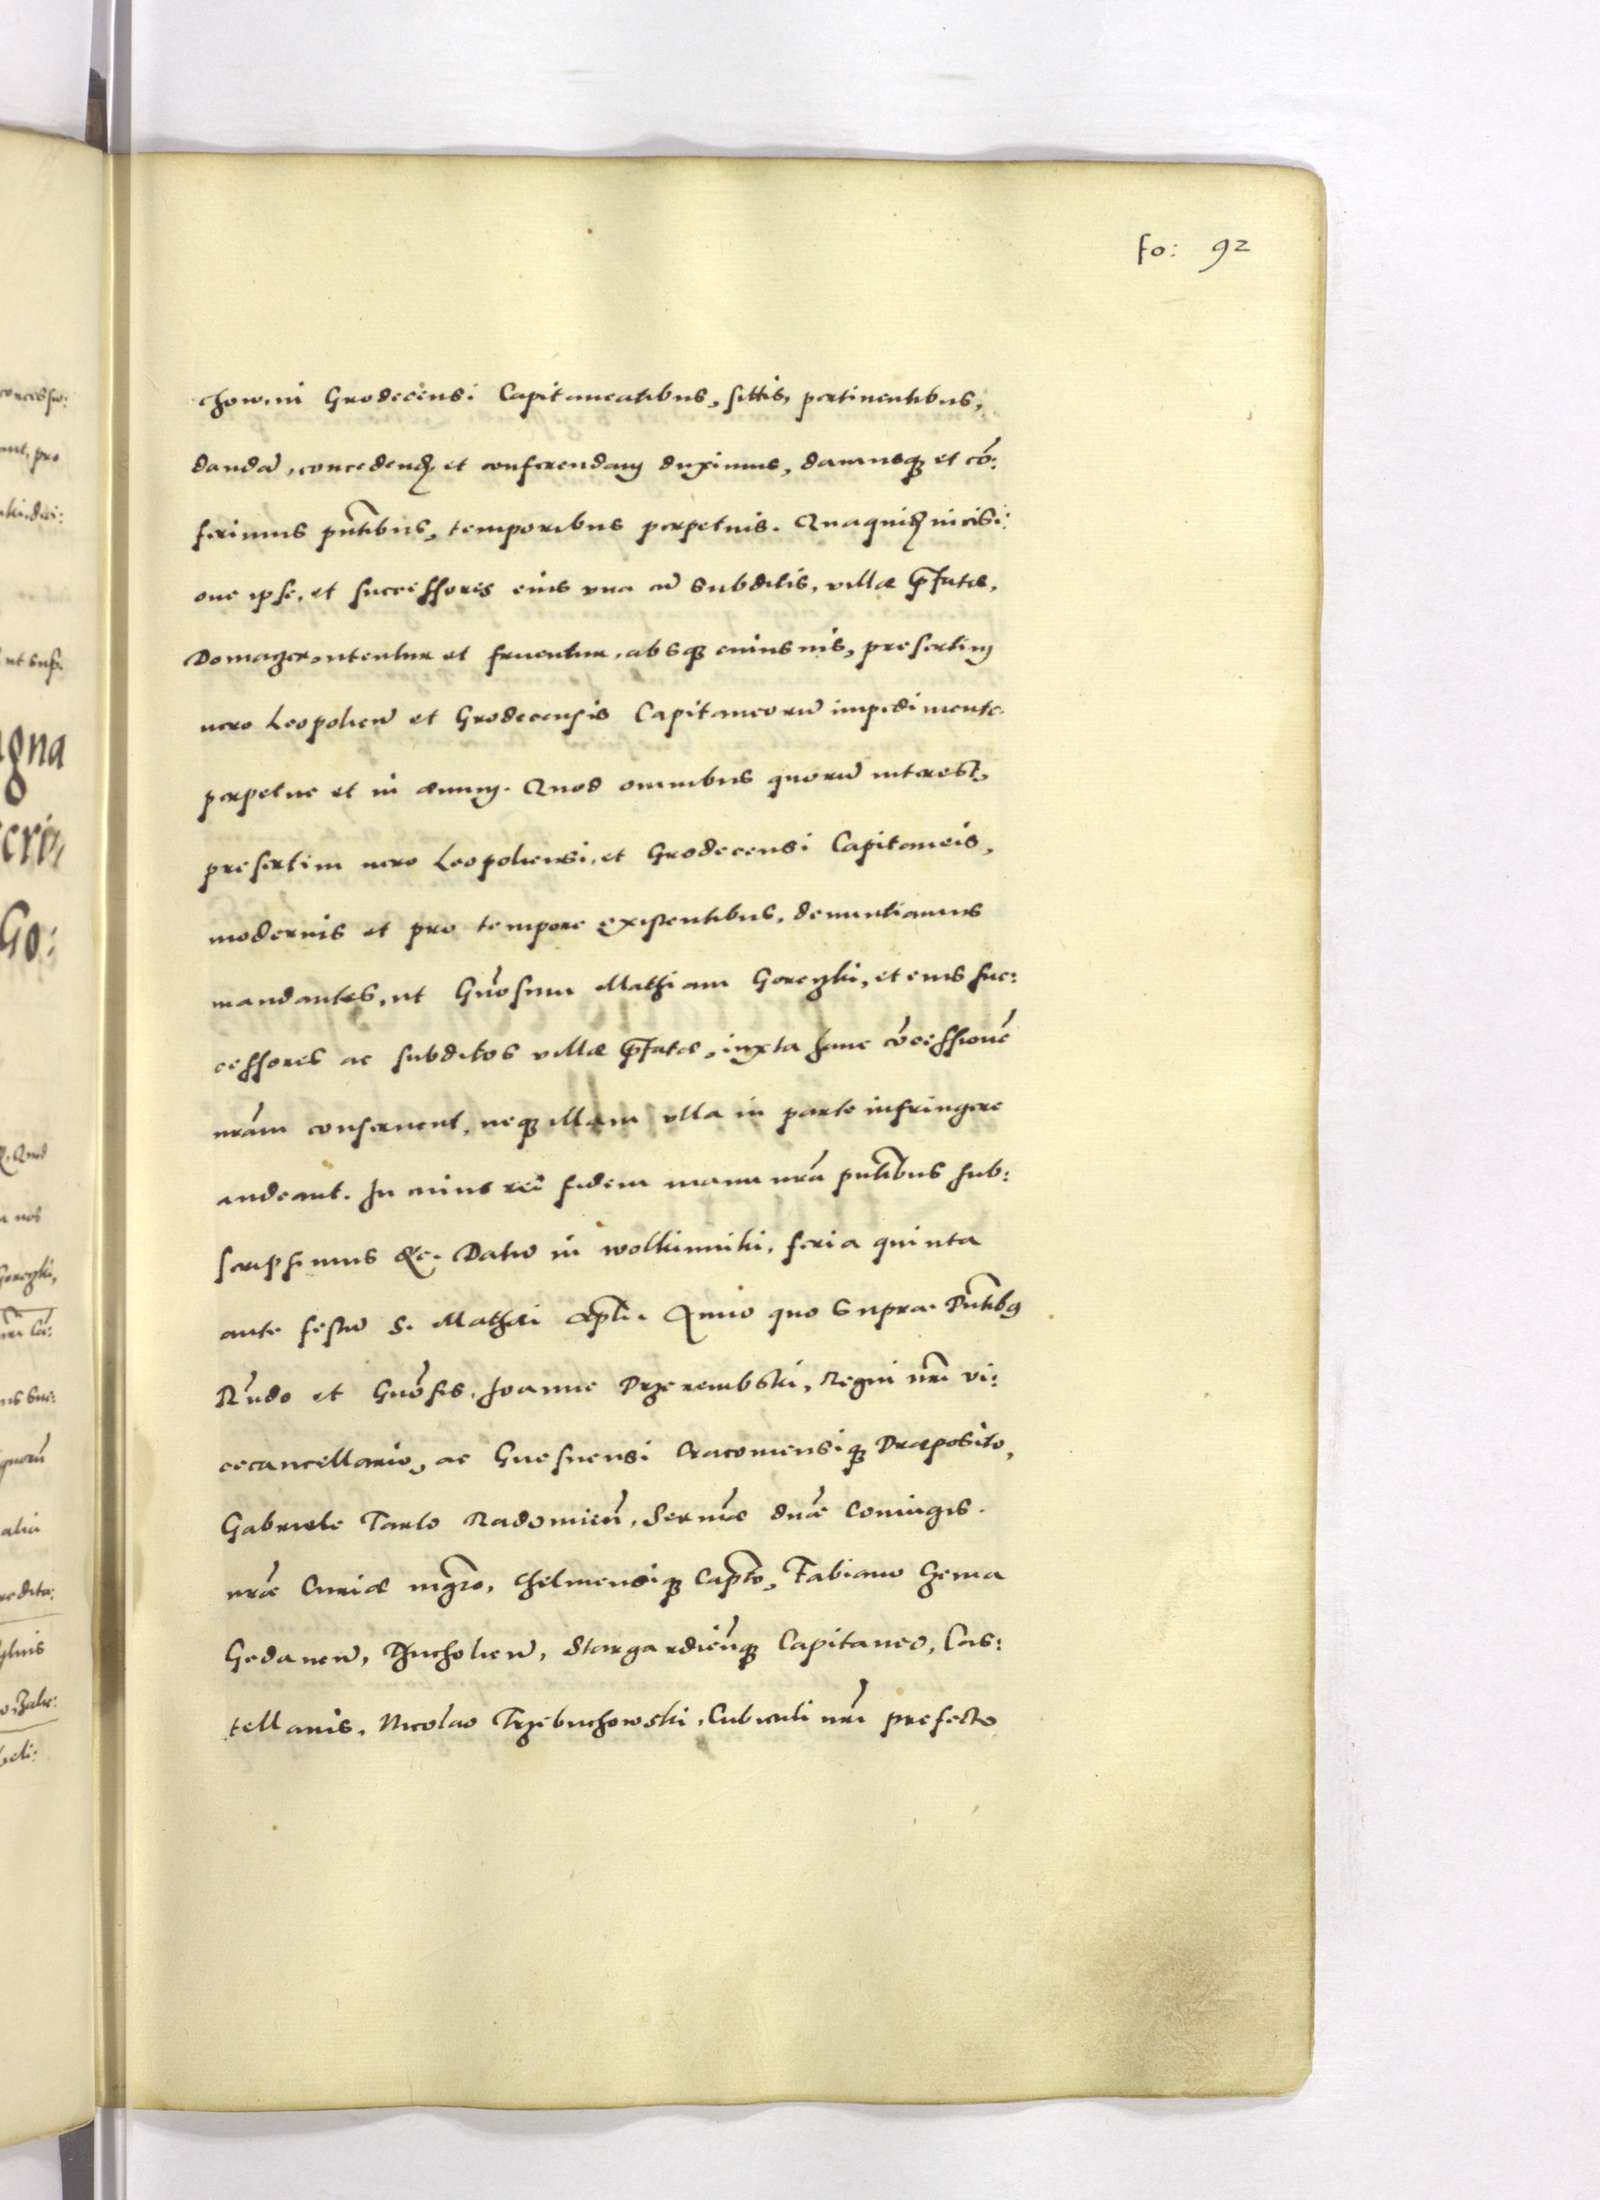 fo: 92
chow, in Grodecensi Capitaneatibus, sittis, pertinentibus,
dandā, concedendā et conferendam duximus, damusq et cō:
ferimus pn̄tibus, temporibus perpetuis. Quaquidē incisi:
one ipse, et successores eius vna cū subditis, villæ p̄fatæ,
Domagier, utentur et fruentur, absq cuiusuis, presertim
uero Leopolien̄ et Grodecensis Capitaneorū impedimento
perpetue et in æuum. Quod omnibus quorū interest,
presertim uero Leopoliensi, et Grodecensi Capitaneis,
modernis et pro tempore existentibus, denuntiamus
mandantes, ut Gn̄osum Mathiam Goreczki, et eius suc:
cessores ac subditos villæ p̄fatæ, iuxta hanc cōcessionē
nr̄am conseruent, neq illam vlla in parte infringere
audeant. In cuius rei fidem manu nr̄a pn̄tibus sub:
scripsimus &c. Datū in wolkiniki, feria quinta
ante festū S. Mathæi Apl̄i. Anno quo supra. Pn̄tibus
Rn̄do et Gn̄osis, Joanne Przerembski, Regni nr̄i vi:
cecancellario, ac Gnesnensi Cracouiensiq Præposito,
Gabriele Tarlo Radomien̄, Sermæ dn̄æ Coniugis
nr̄æ Curiæ mgr̄o, Chelmensiq Capt̄o, Fabiano Czema
Gedanen̄, Thucholien̄, Stargardien̄q Capitaneo, Cas:
tellanis, Nicolao Trzebuchowski, Cubiculi nr̄i prefecto